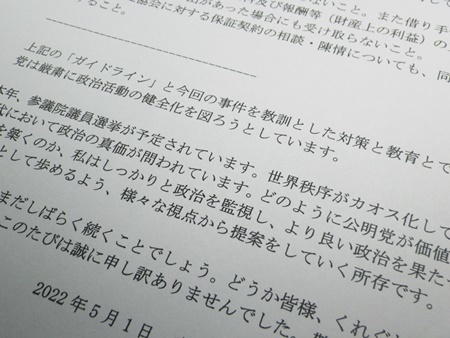 科及び報酬等（財産上の利益）の
ないこと。また借り手
があった場合にも受け取らないこと。
協会に対する保証契約の相談・陳情についても、同
ること。
上記の「ガイドライン」と今回の事件を教訓とした対策と教育とで
党は厳粛に政治活動の健全化を図ろうとしています。
本年、参議院議員選挙が予定されています。世界秩序がカオス化して
において政治の真価が問われています。どのように公明党が価値
を築くのか、私はしっかりと政治を監視し、より良い政治を果た
として歩めるよう、様々な視点から提案をしていく所存です。
まだしばらく続くことでしょう。どうか皆様、くれぐ
このたびは誠に申し訳ありませんでした。
2022年5月1日